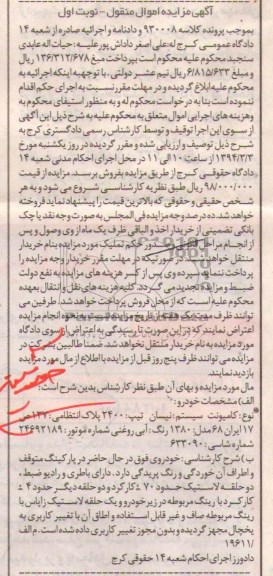 آگهی مزایده اموال منقول - نوبت اول
بموجب پرونده کلاسه ۹۳۰۰۰۸ و دادنامه و اجرائیه صادره از شعبه ۱۴
دادگاه عمومی کرج له:علی اصغر داداش پور علیه: حیات اله عابدی
سنجبد محکوم علیه محکوم است بپرداخت مبلغ ۱۳۶/۳۱۲/۶۷۸ ریال
و مبلغ ۶/۸۱۵/۶۳۳ ریال نیم عشر دولتی ، با توجه به اینکه اجرائیه به
محکوم علیه ابلاغ گردیده و در مهلت مقرر نسبت به اجرای حکم اقدام
ننموده است بنا به درخواست محکوم له و به منظور استیفای محکوم به
و هزینه های اجرایی اموال متعلق به محکوم علیه به شرح ذیل این آگهی
از سوی این اجرا توقیف و توسط کارشناس رسمی دادگستری کرج به
شرح ذیل توصیف و ارزیابی شده و مقرر گردیده در روز یکشنبه مورخ
۱۳۹۴/۲/۳ از ساعت ۱۰ الی ۱۱ در محل اجرای احکام مدنی شعبه ۱۴
دادگاه حقوقی کرج از طریق مزایده بفروش برسد. مزایده از قیمت
۹۸/۰۰۰/۰۰۰ ریال طبق نظریه کارشناسی شروع می شود و به هر
شخص حقیقی و حقوقی که بالاترین قیمت را پیشنهاد نماید فروخته
خواهد شد. ده درصد وجه مزایده فی المجلس به صورت وجه نقد یا چک
بانکی تضمینی از خریدار اخذ و الباقی ظرف یک ماه از وی وصول و پس
از انجام مراحل قانونی و صدور حکم تملیک مورد مزایده بنام خریدار
منتقل خواهد شد. در صورتیکه در مهلت مقرر خریدار وجه مزایده را
پرداخت ننماید سپرده وی پس از کسر هزینه های مزایده به نفع دولت
ضبط و مزایده تجدید می گردد. کلیه هزینه های نقل و انتقال بعهده
محکوم علیه است که از محل فروش پرداخت خواهد شد. طرفین می
توانند ظرف مدت یک هفته از تاریخ مزایده نسبت به نحوه انجام مزایده
اعتراض نمایند که در این صورت تا رسیدگی به اعتراض از سوی دادگاه
مورد مزایده به نام خریدار منتقل نخواهد شد. ضمنا طالبین شرکت در
مزایده می توانند ظرف پنج روز قبل از مزایده با اطلاع از مال مورد مزایده
بازدید نمایند.
مال مورد مزایده و بهای آن طبق نظر کارشناس بدین شرح است:
الف) مشخصات خودرو:
نوع: کامیونت سیستم: نیسان تیپ: ۲۴۰۰ پلاک انتظامی: ۱۳۷ص
۱۷ ایران ۶۸ مدل: ۱۳۸۰ رنگ: آبی روغنی شماره موتور: ۲۴۶۹۲۱۸۹
شماره شاسی: ۶۳۳۰۹۰
ب) شرح کارشناسی: خودروی فوق در حال حاضر در پارکینگ متوقف
و اطراف آن خوردگی و رنگ پریدگی دارد. دارای باطری و رادیو ضبط،
دو حلقه لاستیک حدود ۷۰٪ کارکرد و دو حلقه دیگر حدود ۴۰٪
کارکرد با رینگ مربوطه در زیر خودرو و یک حلقه لاستیک زاپاس با
رینگ مربوطه صاف و غیر قابل استفاده و اطاق آن با تغییر کاربری به
یخچال مجهز گردیده و بدون مجوز تغییر کاربری داده شده است. م الف
۱۹۶۱۱/
دادورز اجرای احکام شعبه ۱۴ حقوقی کرج